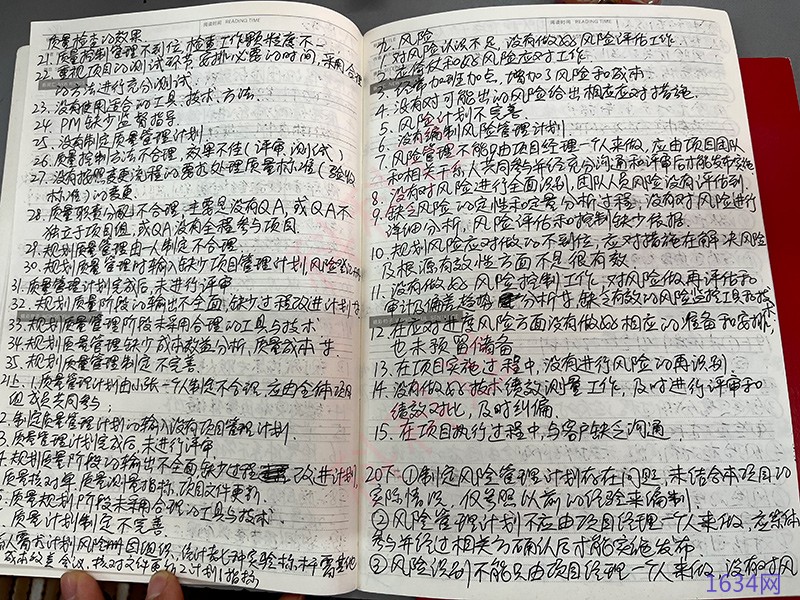 阅读时间 READING TIME
质量检查的效果
21. 质量控制管理不到位, 检查工作颗粒度不一
22. 重视项目的测试环节, 安排必需的时间, 采用合理
的方法进行充分测试.
23. 没有使用适合的工具、技术、方法.
24. PM缺少监督指导
25. 没有制定质量管理计划
26. 质量控制方法不合理, 效果不佳(评审, 测试)
27. 没有按照变更流程的需求处理质量标准(验收
标准)的变更.
28. 质量职责分配不合理, 主要是没有QA, 或QA不
独立于项目组, 或QA没有全程参与项目.
29. 规划质量管理由一人制定不合理.
30. 规划质量管理时输入缺少项目管理计划, 风险登记册
31. 质量管理计划完成后, 未进行评审
32. 规划质量阶段的输出不全面, 缺少过程改进计划等
33. 规划质量管理阶段未采用合理的工具与技术.
34. 规划质量管理缺少成本效益分析、质量成本等.
35. 规划质量管理制定不完善.
21上 1. 质量管理计划由小张一个人制定不合理, 应由全体项目
组成员共同参与;
2. 制定质量管理计划的输入没有项目管理计划.
3. 质量管理计划完成后, 未进行评审
4. 规划质量阶段的输出不全面, 缺少过程改进计划,
质量核对单, 质量测量指标, 项目文件更新
5. 质量规划阶段未采用合理的工具与技术.
质量计划制定不完善
阅读时间 READING TIME
九. 风险
1. 对风险认识不足, 没有做好风险评估工作.
2. 应落实和好风险应对工作.
3. 经常加班加点, 增加了风险和成本
4. 没有对可能出的风险给出相应应对措施.
5. 风险计划不完善.
6. 没有编制风险管理计划
7. 风险管理不能只由项目经理一个人来做, 应由项目团队
和相关干系人共同参与并经充分沟通和评审后才能发布实施
8. 没有对风险进行全面识别, 团队人员风险没有评估到.
9. 缺乏风险的定性和定量分析过程, 没有对风险进行
详细分析, 风险评估和控制缺少依据
10. 规划风险应对做的不到位, 应对措施在解决风险
及根源有效性方面不是很有效
11. 没有做好风险控制工作, 对风险做再评估和
审计及偏差趋势分析等, 缺乏有效的风险监控工具和技术
12. 在应对进度风险方面没有做好相应的准备和安排,
也未预留储备
13. 在项目实施过程中, 没有进行风险的再识别
14. 没有做好技术绩效测量工作, 及时进行评审和
绩效对比, 及时纠偏
15. 在项目执行过程中, 与客户缺乏沟通
20下 ①制定风险管理计划存在问题, 未结合本项目的
实际情况, 仅参照以前的经验来编制.
②风险管理计划不应由项目经理一个人来做, 应集体
参与并经过相关方确认后才能实施发布
③风险识别不能只由项目经理一个人来做, 没有对风
1634网